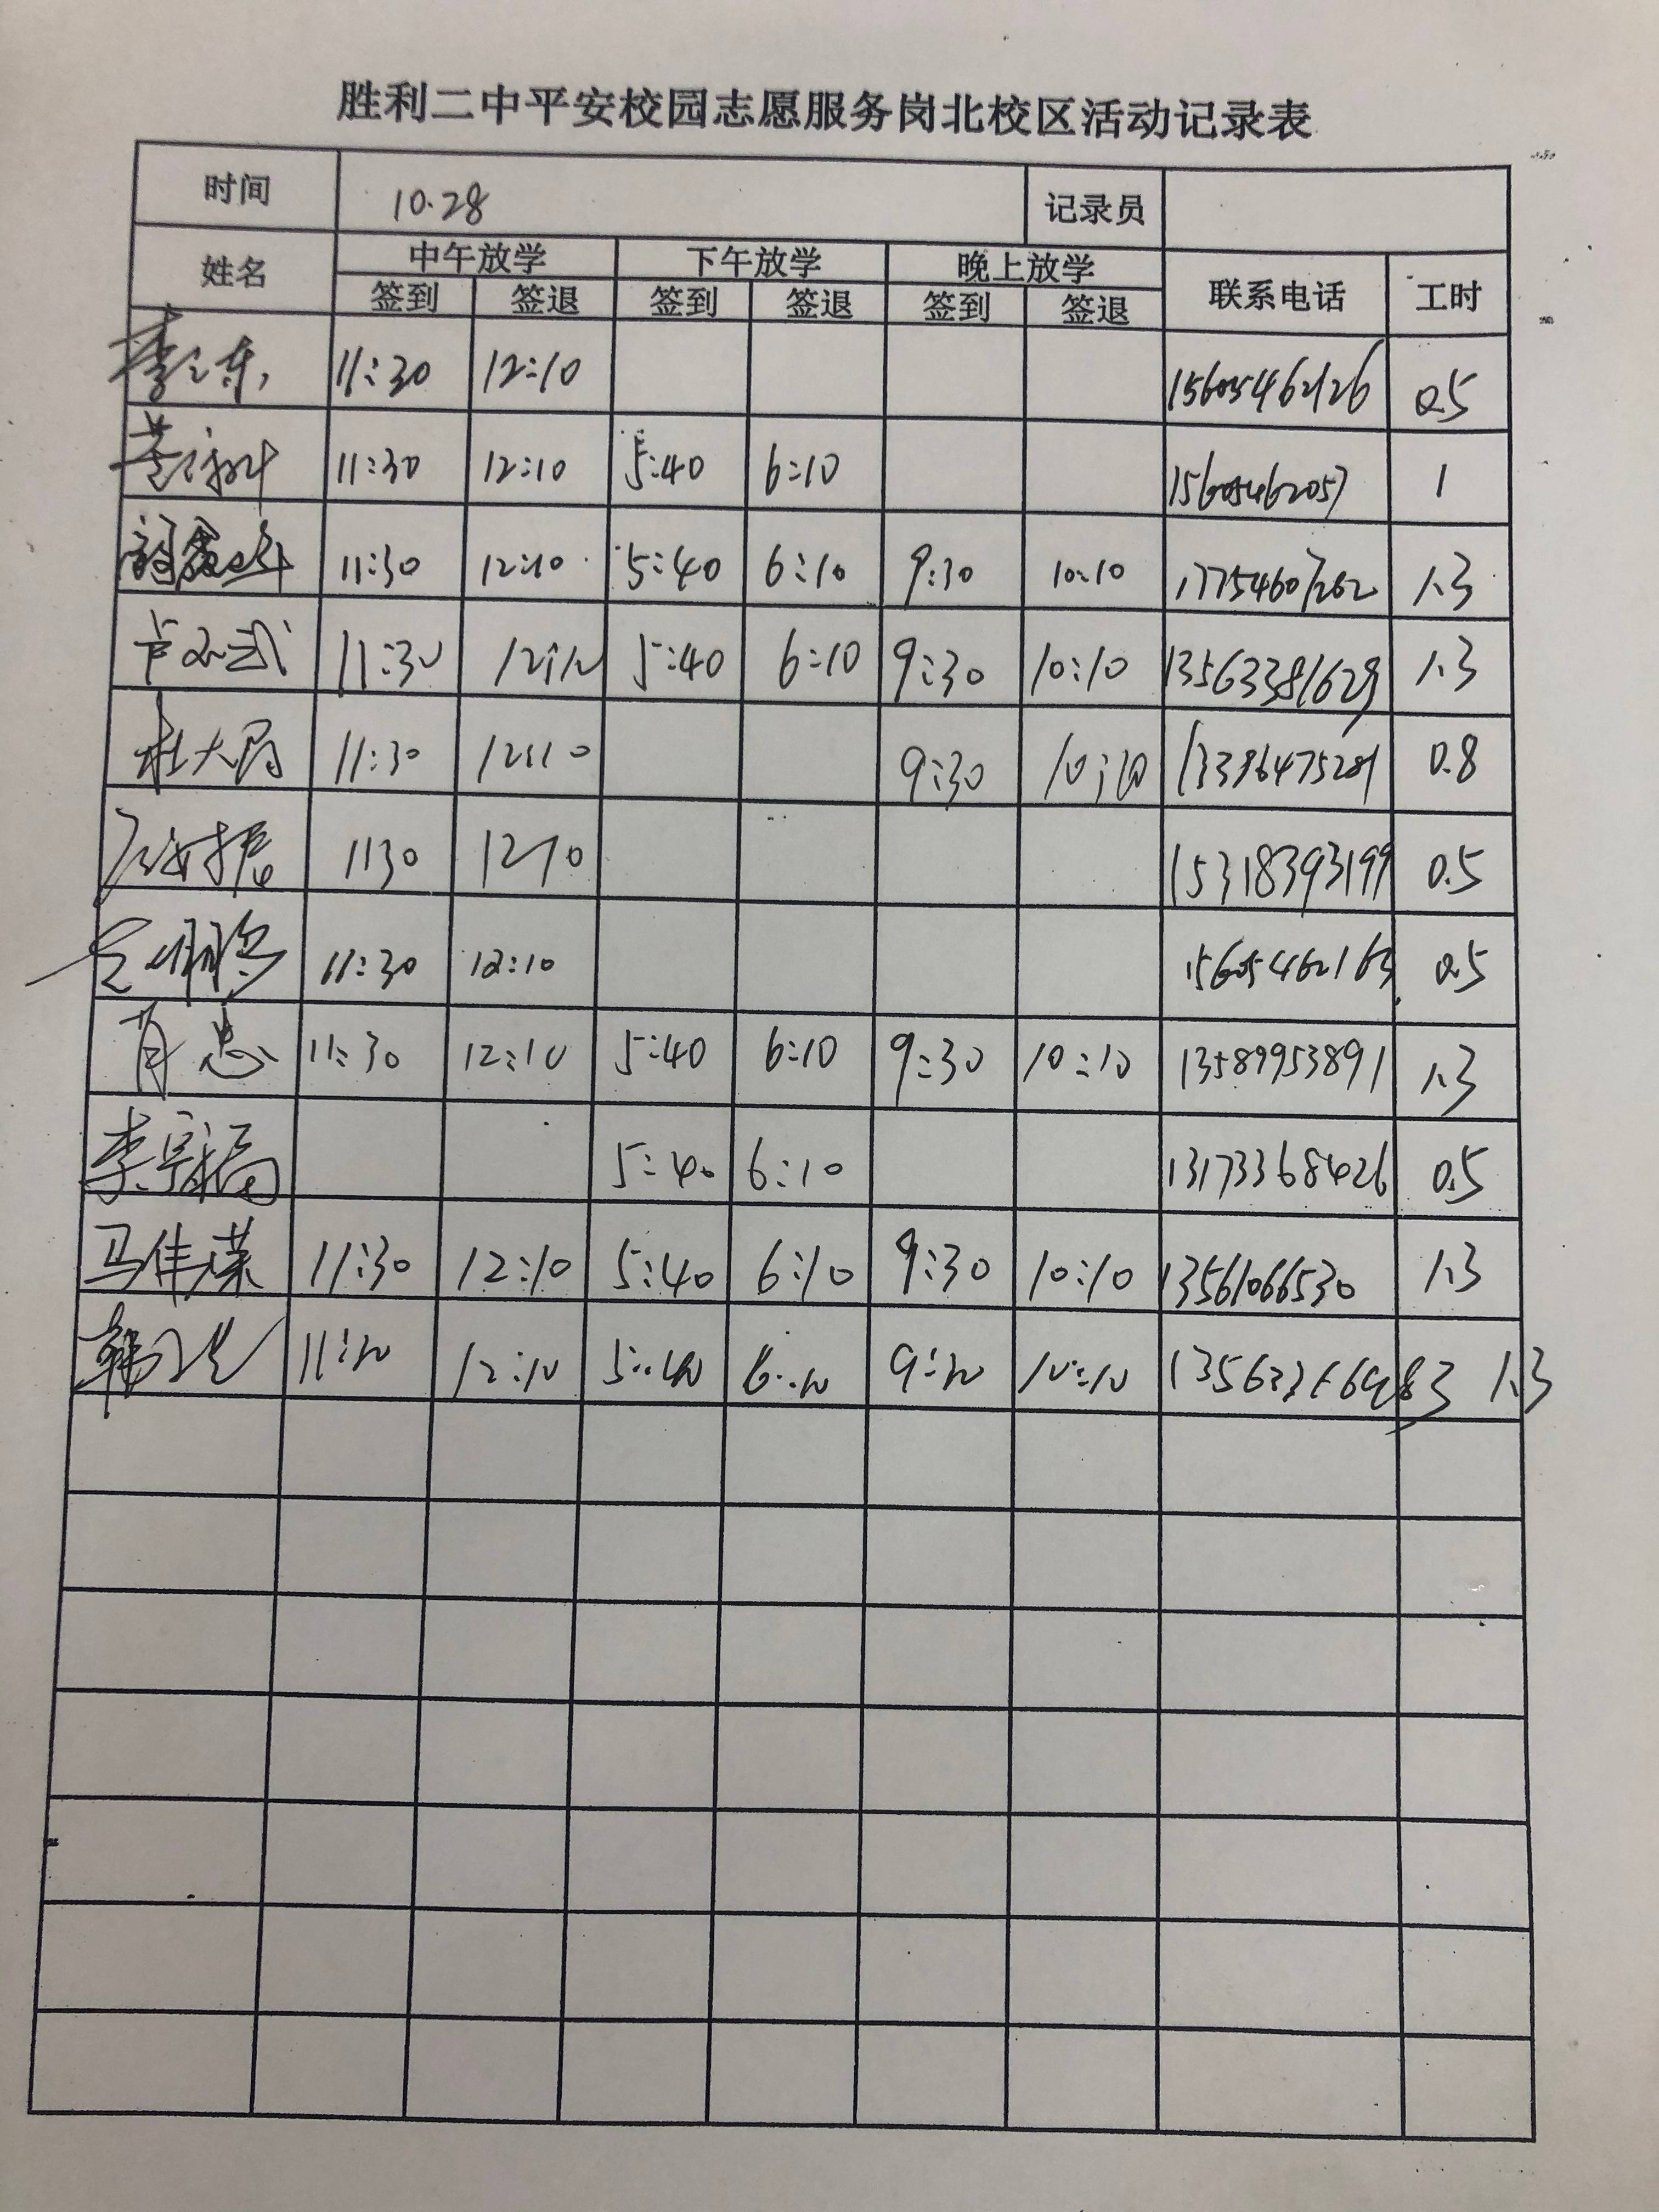 胜利二中平安校园志愿服务岗北校区活动记录表
时间 10.28 记录员
姓名 中午放学 下午放学 晚上放学 联系电话 工时
签到 签退 签到 签退 签到 签退
11:30 12:10 15605462126 0.5
11:30 12:10 5:40 6:10 15605462057 1
11:30 12:10 5:40 6:10 9:30 10:10 17754607262 1.3
11:30 12:10 5:40 6:10 9:30 10:10 13563381629 1.3
杜大局 11:30 12:10 9:30 10:10 0.8
1130 1210 15318393199 0.5
11:30 12:10 15605462163 0.5
肖忠 11:30 12:10 5:40 6:10 9:30 10:10 13589953891 1.3
李宗福 5:40 6:10 13173368426 0.5
马佳荣 11:30 12:10 5:40 6:10 9:30 10:10 13561066530 1.3
11:30 12:10 5:40 6:10 9:30 10:10 1.3